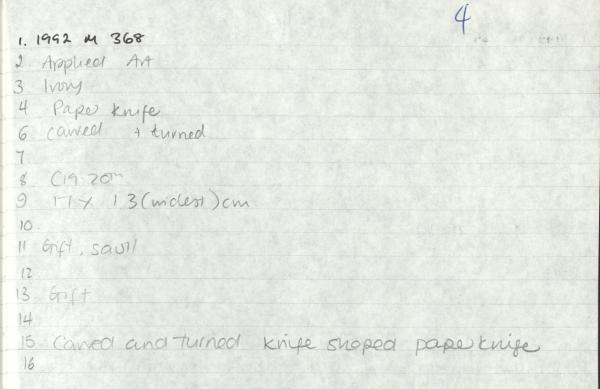 4
1. 1992 M 368
2 Applied Art
3 Ivory
4 Paper knife
6 carved + turned
7
8 C19-20th
9 17 x 1 3 (widest) cm
10.
11 Gift, savill
12
13 Gift
14
15 Carved and turned knife shaped paper knife
16